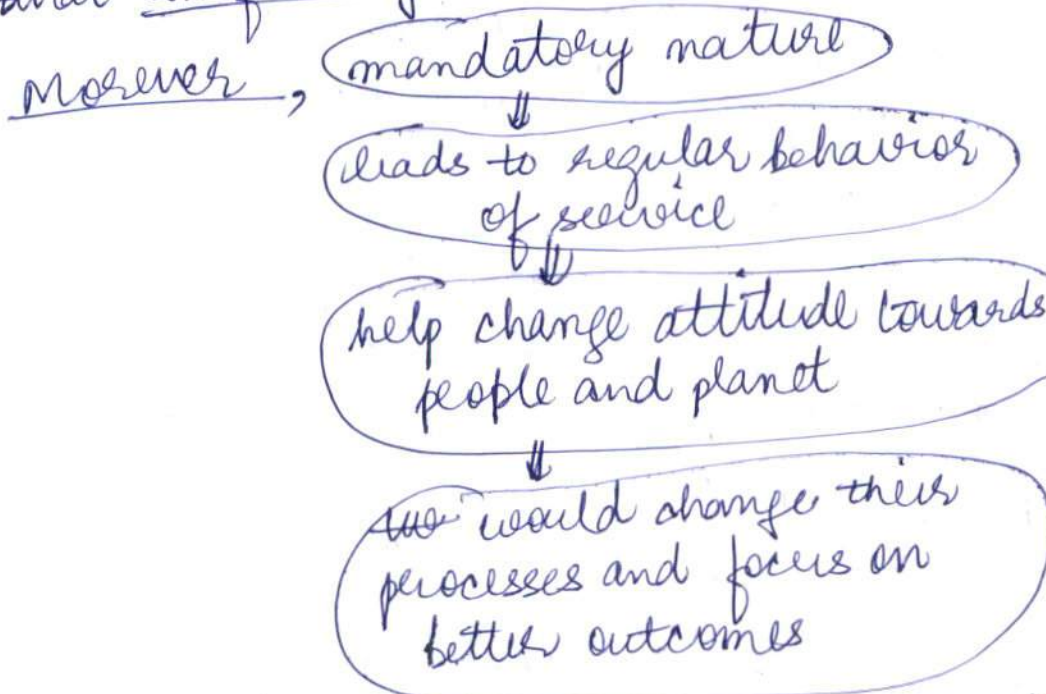 Morever, mandatory nature
leads to regular behavior
of service
help change attitude towards
people and planet
would change their
processes and focus on
better outcomes